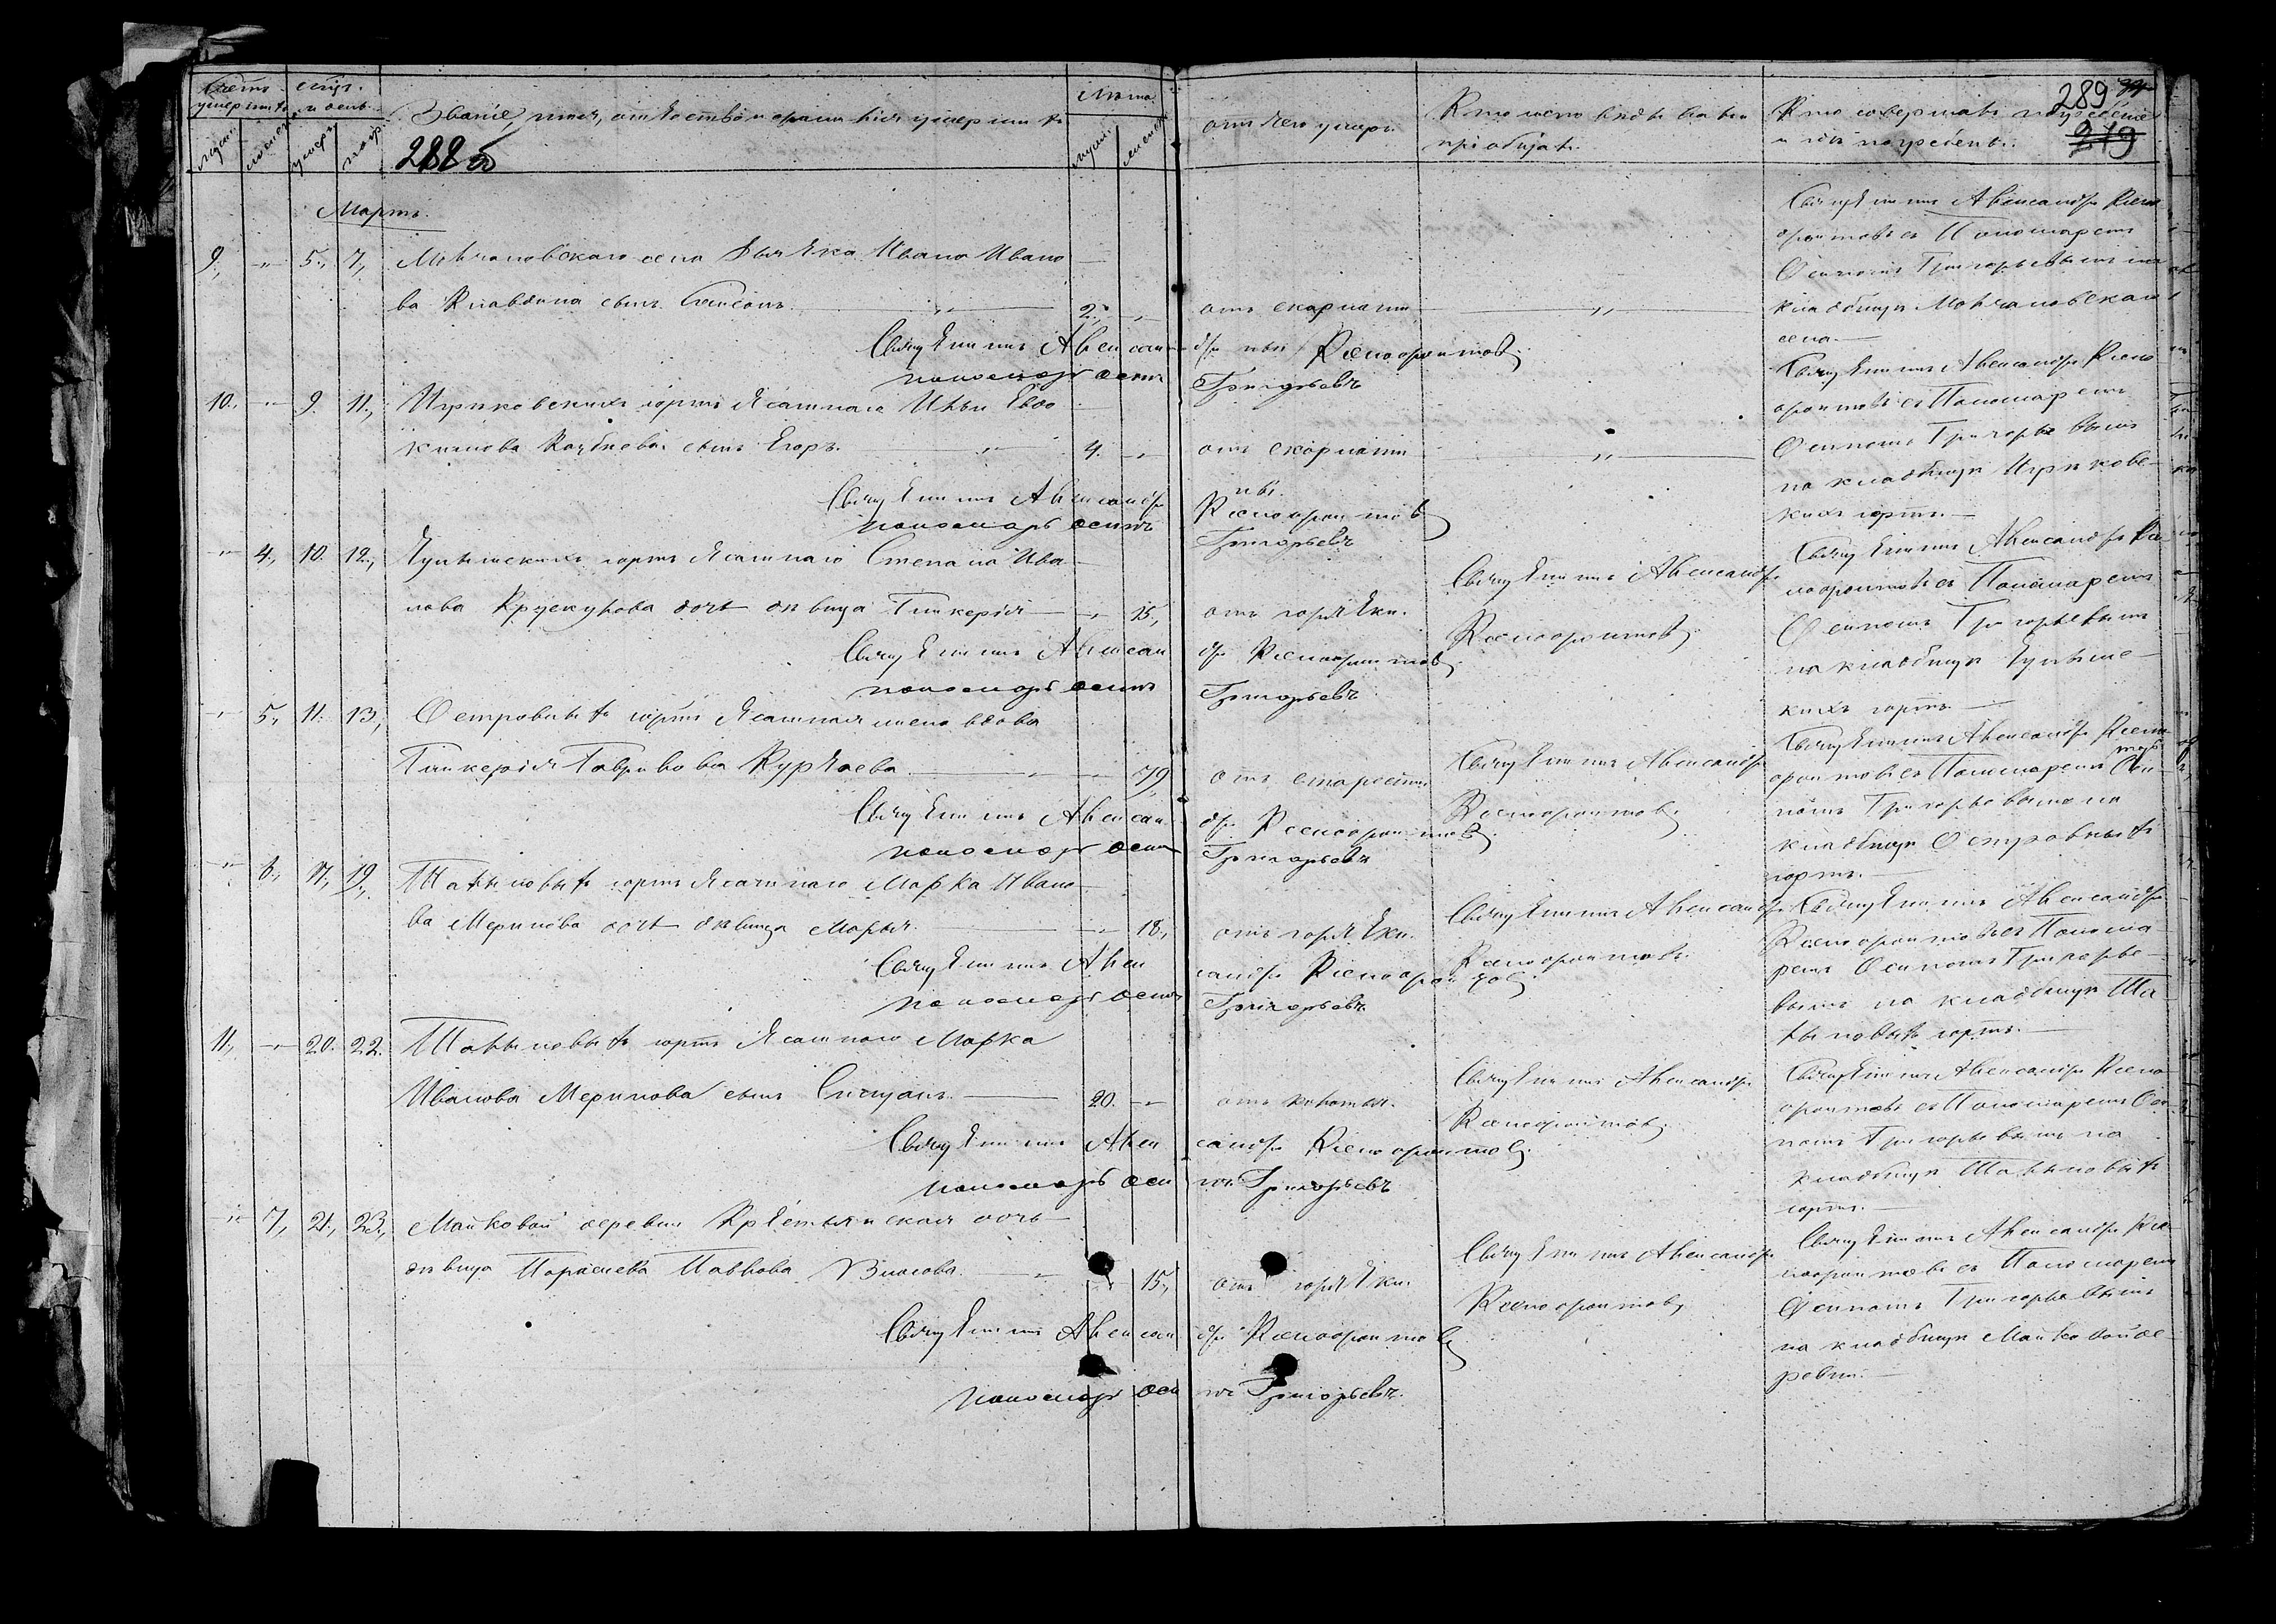 Счетъ умершихъ
мѣсяцъ и день
Званіе, имя, отчество и фамилія умершихъ
Лѣта
мужес.
женск.
умерт.
погр.
мужес.
женск.
288 об
отъ чего умеръ.
Кто исповѣдывалъ и
пріобщалъ.
Кто совершалъ погребеніе
и гдѣ погребенъ.
289
219
Мартъ.
9., „ 5., 7., Молчановскаго села Дьячка Ивана Ивано
ва Клавдина сынъ Самсонъ. 2., „
отъ скарлати
ны
„
Священникъ Александръ Ксено
фонтовъ съ Пономаремъ
Осипомъ Григорьевымъ на
кладбищѣ Молчановскаго
села.
Священникъ Александръ Ксенофонтовъ
пономарь Осипъ Григорьевъ
10., „ 9. 11., Игрековскихъ юртъ Ясашнаго Ильи Евдо
кимова сынъ Егоръ. „ 4. „
отъ скарлати
ны.
„
Священникъ Александръ Ксено
фонтовъ съ Пономаремъ
Осипомъ Григорьевымъ
на кладбищѣ Игрековс
кихъ юртъ.
Священникъ Александръ Ксенофонтовъ
пономарь Осипъ Григорьевъ
„ 4., 10. 12., юртъ Ясашнаго Степана Ива
нова дочь дѣвица Гликерія „ 15.,
отъ горячки.
Священникъ Александръ
Ксенофонтовъ
Священникъ Александръ Ксе
нофонтовъ съ Пономаремъ
Осипомъ Григорьевымъ
на кладбищѣ
кихъ юртъ.
Священникъ Александръ Ксенофонтовъ
пономарь Осипъ Григорьевъ
„ 5., 11. 13., Островныхъ юртъ Ясашная вдова
Гликерія Гаврилова „ 79
отъ старости.
Священникъ Александръ
Ксенофонтовъ
Священникъ Александръ Ксено
фонтовъ съ Пономаремъ Оси
помъ Григорьевымъ на
кладбищѣ Островныхъ
юртъ.
Священникъ Александръ Ксенофонтовъ
пономарь Осипъ Григорьевъ
„ 19., юртъ Ясашнаго Марка Ивано
ва Меринова дочь дѣвица Марья. „ 18.,
отъ горячки.
Священникъ Александръ
Ксенофонтовъ
Священникъ Александръ
Ксенофонтовъ съ Понома
ремъ Осипомъ Григорье
вымъ на кладбищѣ
юртъ.
Священникъ Александръ Ксенофонтовъ
пономарь Осипъ Григорьевъ
11., „ 20. 22. юртъ Ясашнаго Марка
Иванова Меринова сынъ 20. „
Священникъ Александръ
Ксенофонтовъ
Священникъ Александръ Ксено
фонтовъ съ Пономаремъ Оси
помъ Григорьевымъ на
кладбищѣ
юртъ.
Священникъ Александръ Ксенофонтовъ
пономарь Осипъ Григорьевъ
„ 7., 21., 23., Майковой деревни Крестьянская дочь
дѣвица Параскева Павлова Власова. „ 15.,
отъ горячки.
Священникъ Александръ
Ксенофонтовъ
Священникъ Александръ Ксе
нофонтовъ съ Пономаремъ
Осипомъ Григорьевымъ
на кладбищѣ Майковой де
ревни.
Священникъ Александръ Ксенофонтовъ
пономарь Осипъ Григорьевъ.